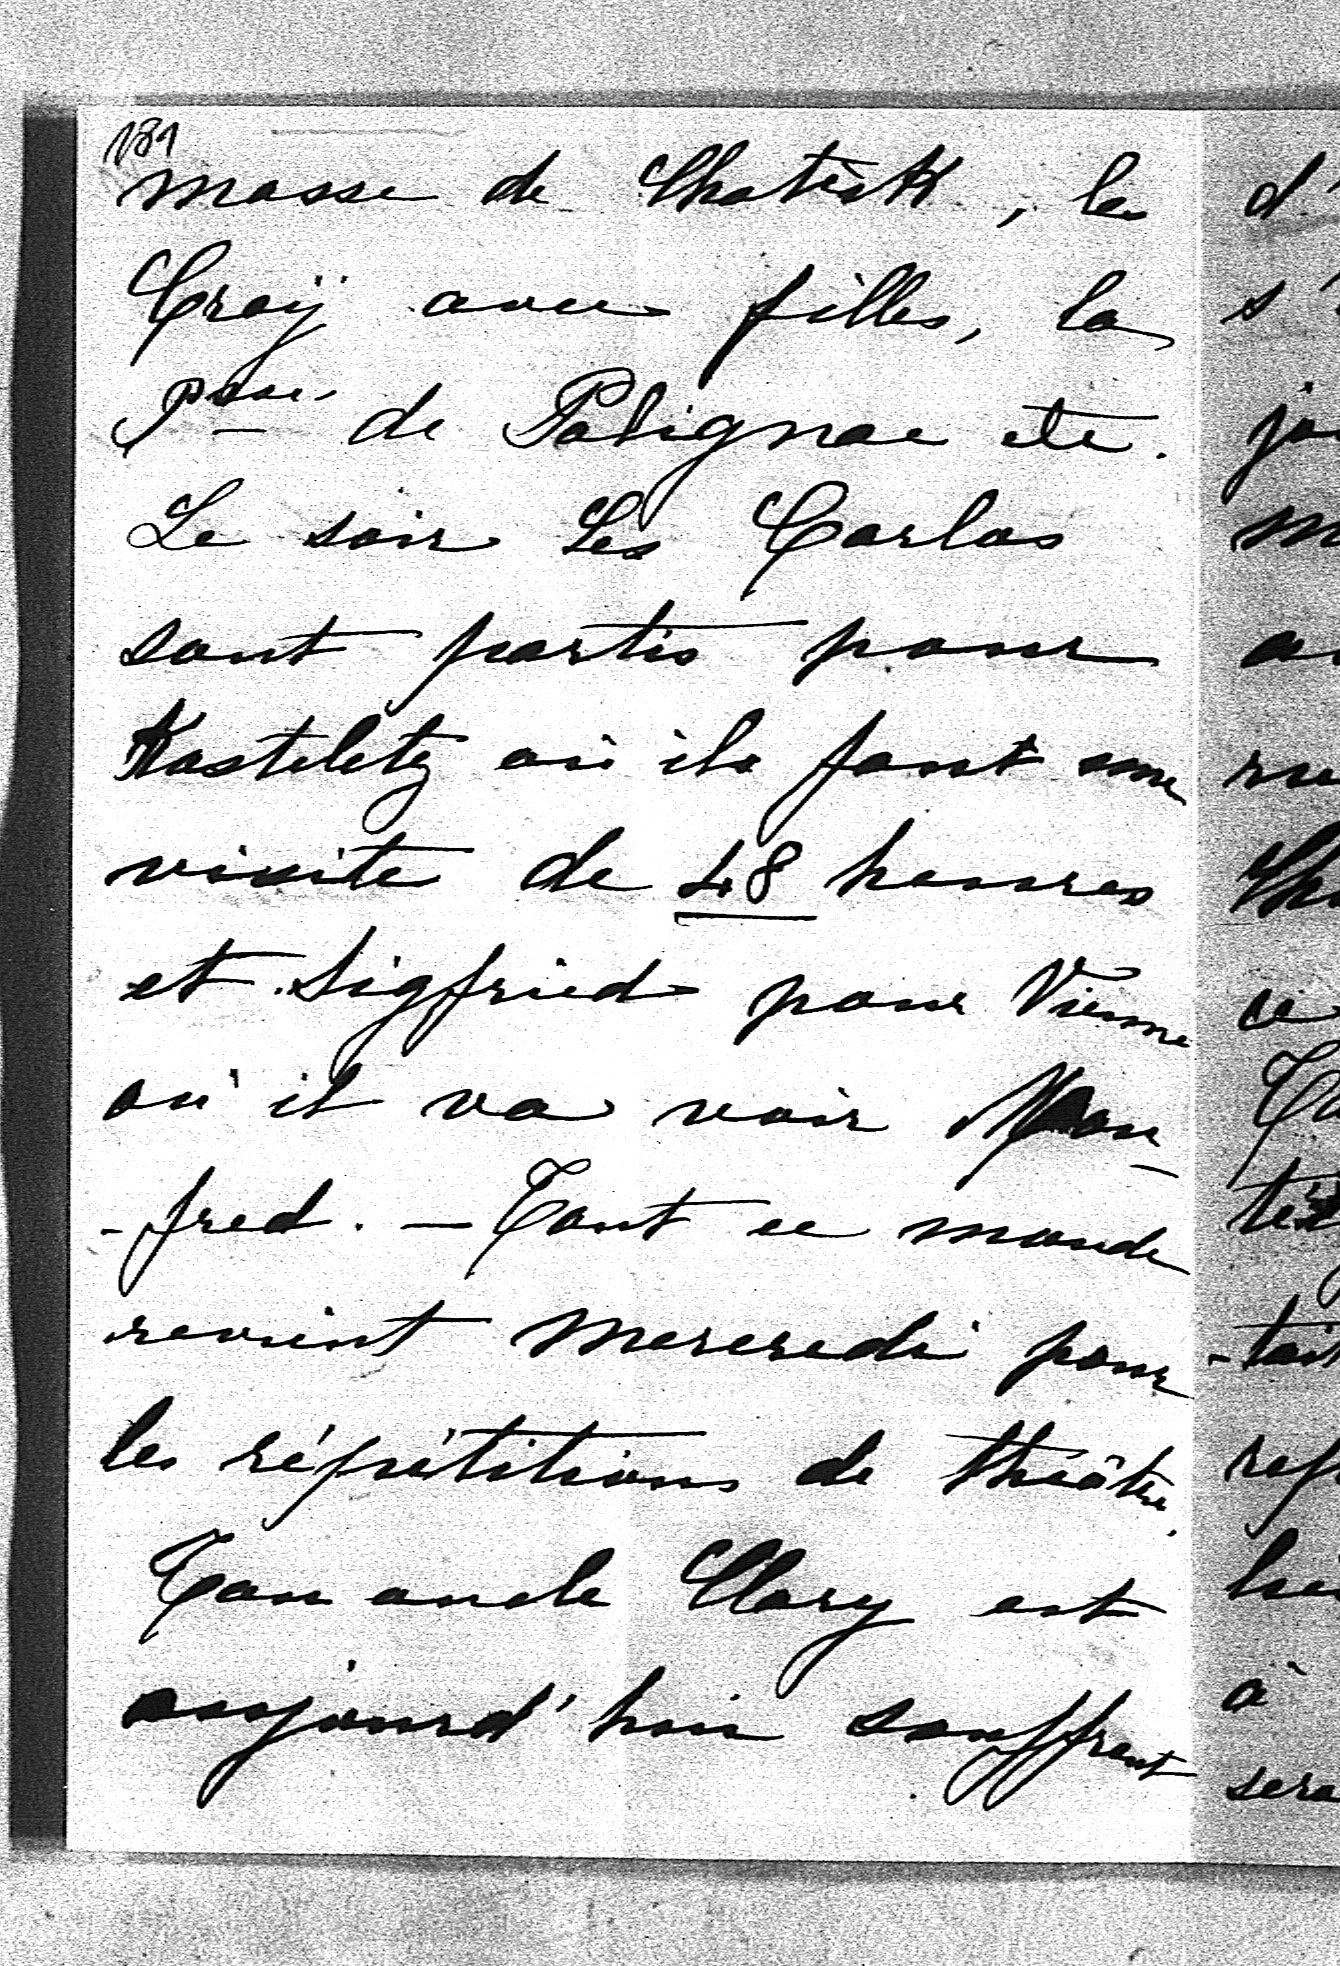 181
masse de Chotek, les
Croÿ avec filles, la
Psse de Polignac etc.
Le soir Les Carlos
sont partis pour
Kosteletz où ils font une
visite de 48 heures
et Sigfried pour Vienne
où il va voir Man-
-fred. — Tout ce monde
revient mercredi pour
les répétitions de théâtre.
Ton oncle Clary est
aujourd'hui souffrant